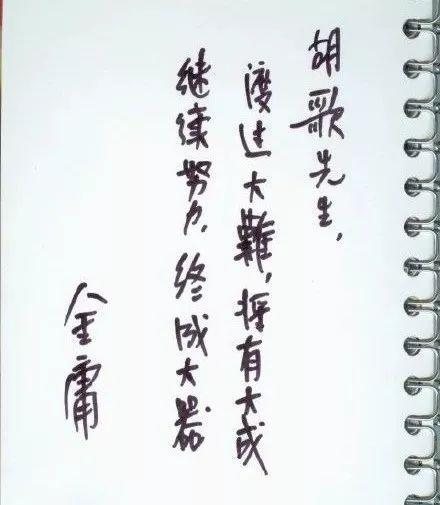 胡歌先生,
渡过大難,擁有大成
继续努力,终成大器
金庸